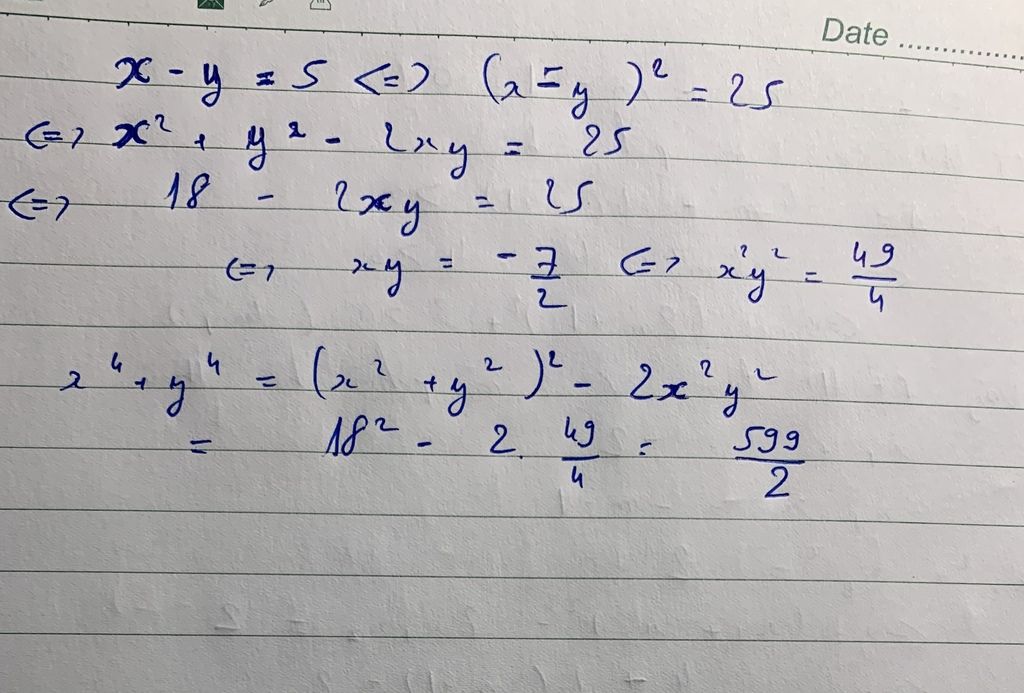 Date ..............
x - y = 5 <=> (x - y)² = 25
<=> x² + y² - 2xy = 25
<=> 18 - 2xy = 25
<=> xy = - 7/2 <=> x²y² = 49/4
x⁴ + y⁴ = (x² + y²)² - 2x²y²
= 18² - 2. 49/4 = 599/2